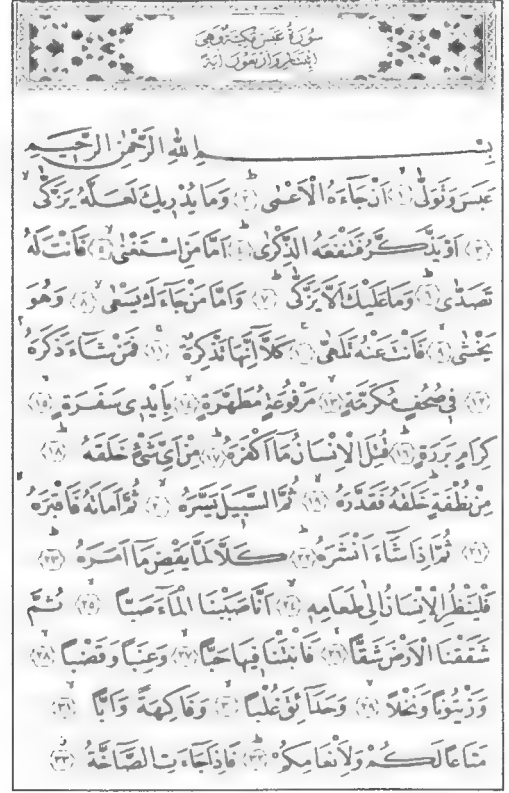 سُورَةُ عَبَسَ مَكِّيَّةٌ وَهِيَ
اِثْنَتَانِ وَاَرْبَعُونَ اٰيَةً
بِسْمِ اللّٰهِ الرَّحْمٰنِ الرَّحٖيمِ
عَبَسَ وَتَوَلّٰىۙ ﴿١﴾ اَنْ جَٓاءَهُ الْاَعْمٰىۜ ﴿٢﴾ وَمَا يُدْرٖيكَ لَعَلَّهُ يَزَّكّٰىۙ
﴿٣﴾ اَوْ يَذَّكَّرُ فَتَنْفَعَهُ الذِّكْرٰىۜ ﴿٤﴾ اَمَّا مَنِ اسْتَغْنٰىۙ ﴿٥﴾ فَاَنْتَ لَهُ
تَصَدّٰىۜ ﴿٦﴾ وَمَا عَلَيْكَ اَلَّا يَزَّكّٰىۜ ﴿٧﴾ وَاَمَّا مَنْ جَٓاءَكَ يَسْعٰىۙ ﴿٨﴾ وَهُوَ
يَخْشٰىۙ ﴿٩﴾ فَاَنْتَ عَنْهُ تَلَهّٰىۚ ﴿١٠﴾ كَلَّٓا اِنَّهَا تَذْكِرَةٌۚ ﴿١١﴾ فَمَنْ شَٓاءَ ذَكَرَهُۢ
﴿١٢﴾ فٖي صُحُفٍ مُكَرَّمَةٍۙ ﴿١٣﴾ مَرْفُوعَةٍ مُطَهَّرَةٍۙ ﴿١٤﴾ بِاَيْدٖي سَفَرَةٍۙ ﴿١٥﴾
كِرَامٍ بَرَرَةٍۜ ﴿١٦﴾ قُتِلَ الْاِنْسَانُ مَٓا اَكْفَرَهُۜ ﴿١٧﴾ مِنْ اَيِّ شَيْءٍ خَلَقَهُۜ ﴿١٨﴾
مِنْ نُطْفَةٍۜ خَلَقَهُ فَقَدَّرَهُۙ ﴿١٩﴾ ثُمَّ السَّبٖيلَ يَسَّرَهُۙ ﴿٢٠﴾ ثُمَّ اَمَاتَهُ فَاَقْبَرَهُۙ
﴿٢١﴾ ثُمَّ اِذَا شَٓاءَ اَنْشَرَهُۜ ﴿٢٢﴾ كَلَّا لَمَّا يَقْضِ مَٓا اَمَرَهُۜ ﴿٢٣﴾
فَلْيَنْظُرِ الْاِنْسَانُ اِلٰى طَعَامِهٖۙ ﴿٢٤﴾ اَنَّا صَبَبْنَا الْمَٓاءَ صَباًّۙ ﴿٢٥﴾ ثُمَّ
شَقَقْنَا الْاَرْضَ شَقاًّۙ ﴿٢٦﴾ فَاَنْبَتْنَا فٖيهَا حَباًّۙ ﴿٢٧﴾ وَعِنَباً وَقَضْباًۙ ﴿٢٨﴾
وَزَيْتُوناً وَنَخْلاًۙ ﴿٢٩﴾ وَحَدَٓائِقَ غُلْباًۙ ﴿٣٠﴾ وَفَاكِهَةً وَاَباًّۙ ﴿٣١﴾
مَتَاعاً لَكُمْ وَلِاَنْعَامِكُمْۜ ﴿٣٢﴾ فَاِذَا جَٓاءَتِ الصَّٓاخَّةُۘ ﴿٣٣﴾